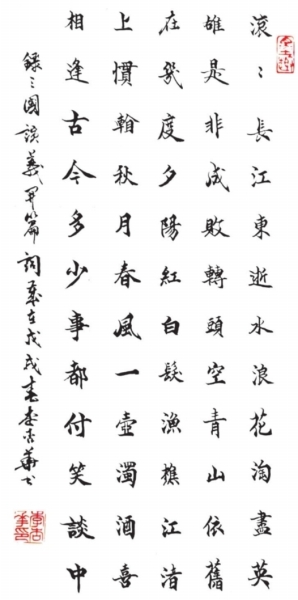 滚〻長江東逝水浪花淘盡英
雄是非成敗轉頭空青山依舊
在幾度夕陽紅白髮漁樵江渚
上慣看秋月春風一壺濁酒喜
相逢古今多少事都付笑談中
錄三國演義開篇詞歲在戊戌春李杏華书